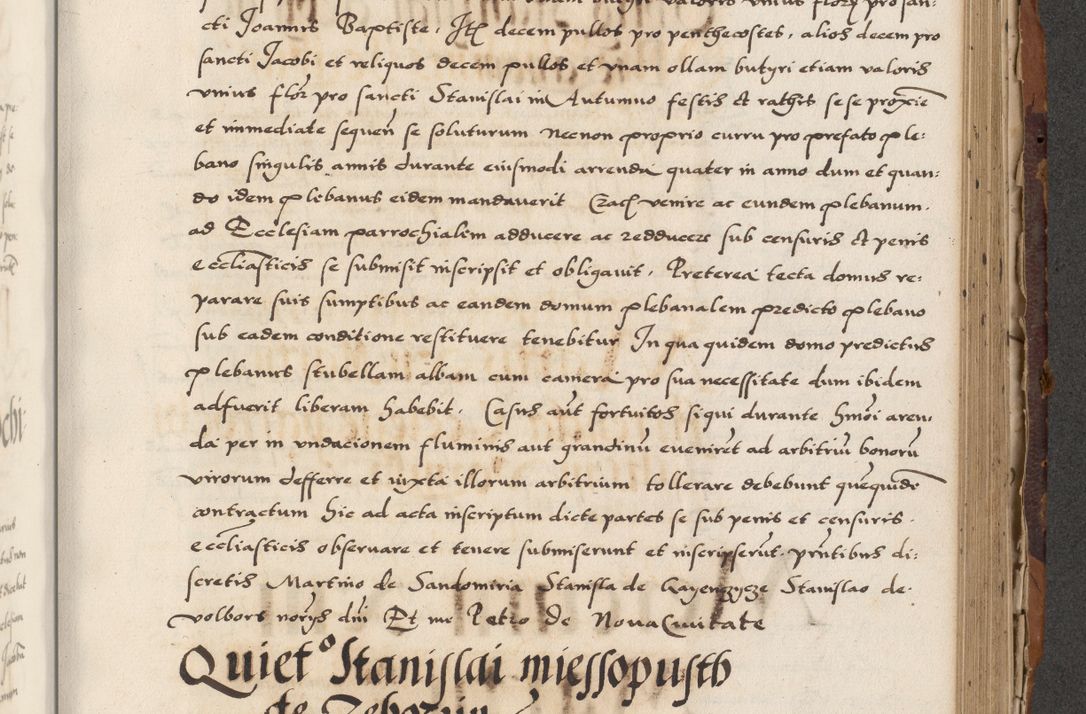 cti Joannis Baptiste, Itē decem pullos pro penthecostes, alios decem pro
sancti Jacobi et reliquos decem pullos et vnam ollam butyri etiam valoris
vnius flor̄ pro sancti Stanislai in Autumno festis et rathis se se proxīe
et immediate sequen̄ se soluturum necnon proprio curru pro prefato ple:
bano singulis annis durante eiusmodi arrenda quater in anno dum et quan:
do idem plebanus eidem mandaverit venire ac eundem plebanum
ad Ecclesiam parrochialem adducere ac redducere sub censuris et penis
eccliasticis se submisit inscripsit et obligauit, Preterea tecta domus re:
parare suis sumptibus ac eandem domum plebanalem predicto plebano
sub eadem conditione restituere tenebitur In qua quidem domo predictus
plebanus stubellam albam cum camera pro sua necessitate dum ibidem
adfuerit liberam habebit. Casus aūt fortuitos siqui durante hmōi aren:
da per in vndacionem fluminis aut grandinū evenirēt ad arbitriū bonorū
virorum defferre et iuxta illorum arbitrium tollerare debebunt quequidē
contractum hic ad acta inscriptum dicte partes se sub penis et censuris
eccliasticis observare et tenere submiserunt et inscripserūt prn̄tibus di:
scretis Martino de Sandomiria Stanisla de Stanislao de
volbors nor̄ijs dn̄i Et me Petro de Nova Civitate
Quietº Stanislai miessopusth
de